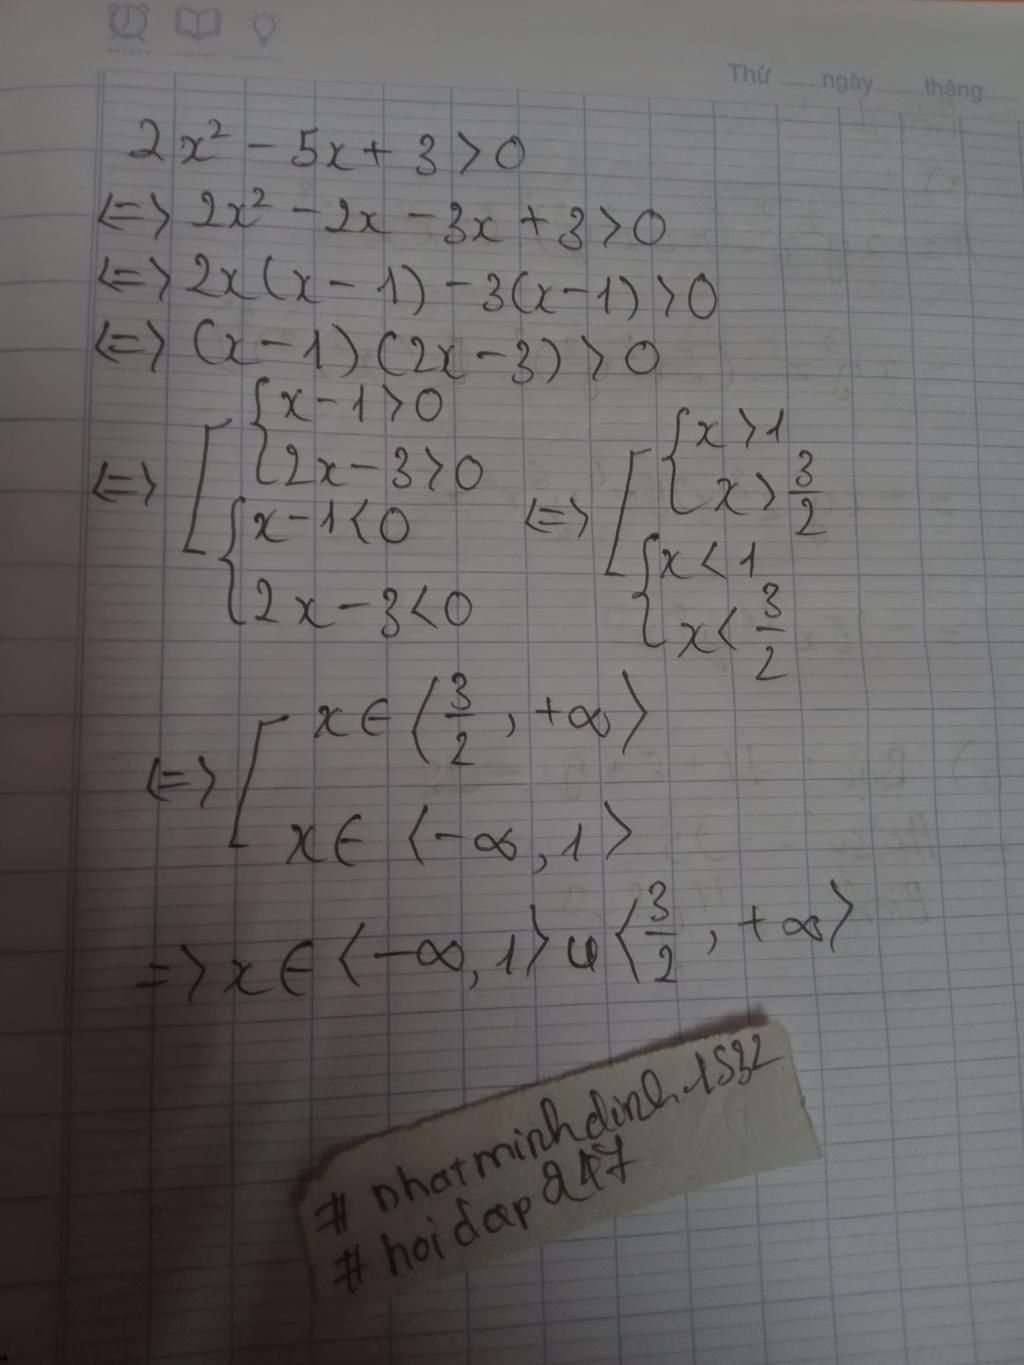 Thứ ........ ngày ........ tháng
2x² - 5x + 3 > 0
<=> 2x² - 2x - 3x + 3 > 0
<=> 2x(x - 1) - 3(x - 1) > 0
<=> (x - 1)(2x - 3) > 0
<=> [ { x - 1 > 0
2x - 3 > 0
{ x - 1 < 0
2x - 3 < 0
<=> [ { x > 1
x > 3/2
{ x < 1
x < 3/2
<=> [ x ∈ ⟨3/2, +∞⟩
x ∈ ⟨-∞, 1⟩
=> x ∈ ⟨-∞, 1⟩ ∪ ⟨3/2, +∞⟩
# nhatminhdinh.1532
# hoidap247